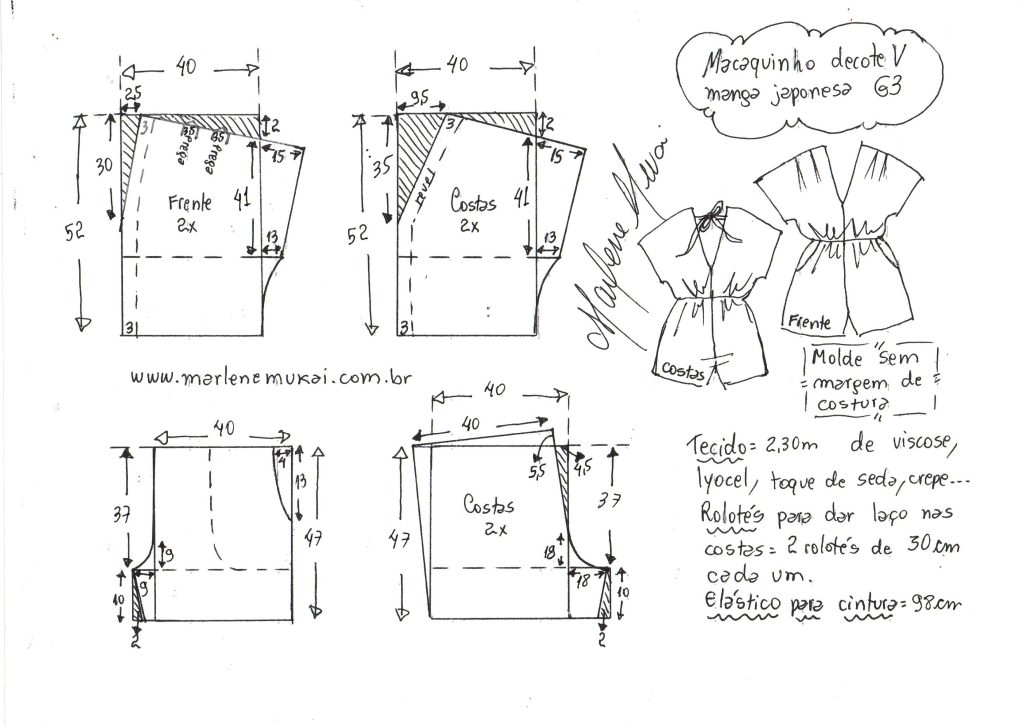 Macaquinho decote V
manga japonesa G3
40
2,5
3
3,5
3,5
prega
prega
2
15
30
52
Frente
2x
41
13
3
40
9,5
3
2
15
35
52
revel
Costas
2x
41
13
3
Marlene Mukai
Frente
Costas
Molde sem
margem de
costura
www.marlenemukai.com.br
40
4
13
37
47
9
9
10
2
40
40
5,5
4,5
Costas
2x
37
47
18
18
10
2
Tecido = 2,30m de viscose,
lyocel, toque de seda, crepe...
Rolotés para dar laço nas
costas = 2 rolotés de 30cm
cada um.
Elástico para cintura = 98cm